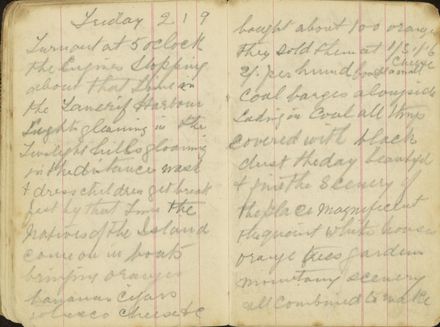 Friday 2 1 9
Turnout at 5 oclock
the Engines Stopping
about that time in
the Tanerif Harbour
Lights gleaming in the
Twilight hills gloaming
in the distance wash
& dress children get break
fast by that time the
Natives of the Island
come on in boats
bringing oranges
bananas Cigars
tobacco Cheese &c
bought about 100 oranges
they sold them at 1/3 1/6
2/. per hund
coal barges alongside
Lading in Coal all things
covered with black
dust the day beautyful
& fine the Scenery of
the place magnificent
the quaint white houses
orange trees gardens
mountany scenery
all combined to make